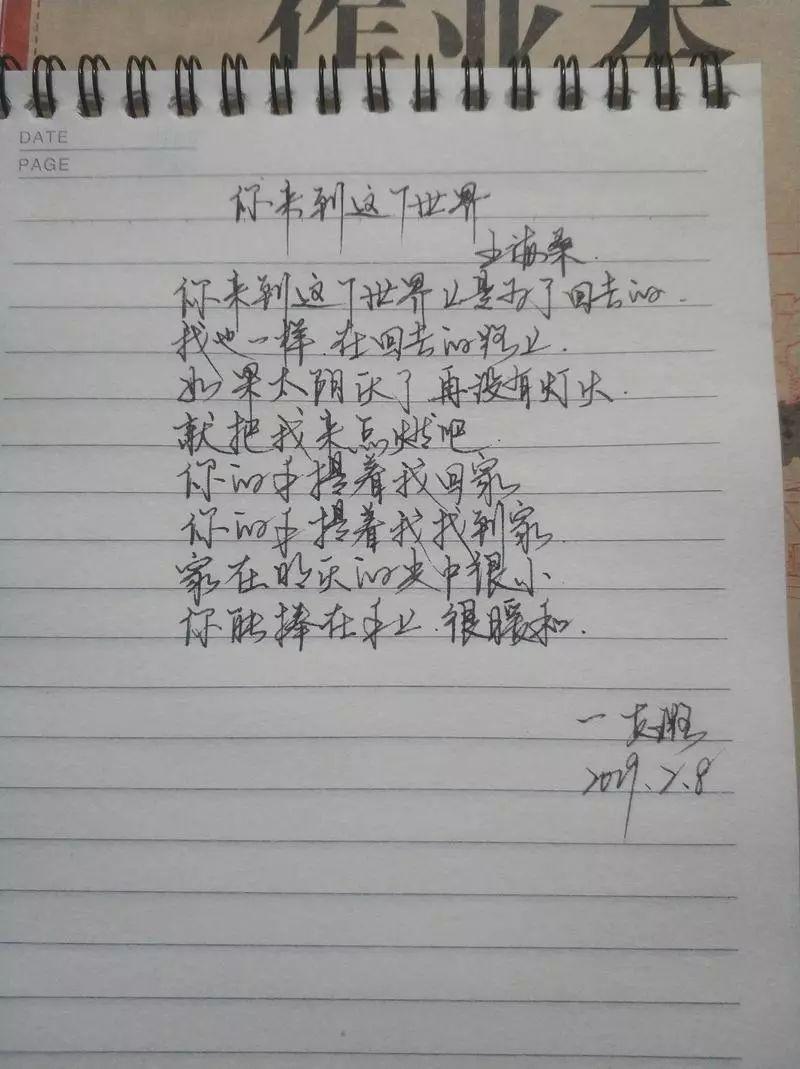 作业本
DATE
PAGE
你来到这个世界
王海桑.
你来到这个世界上是为了回去的.
我也一样.在回去的路上.
如果太阴天了 再没有灯火.
就把我来点燃吧
你的手提着我回家
你的手提着我找到家.
家在昨天的炎中很小.
你能捧在手上.很暖和.
一友胜
2019.2.8